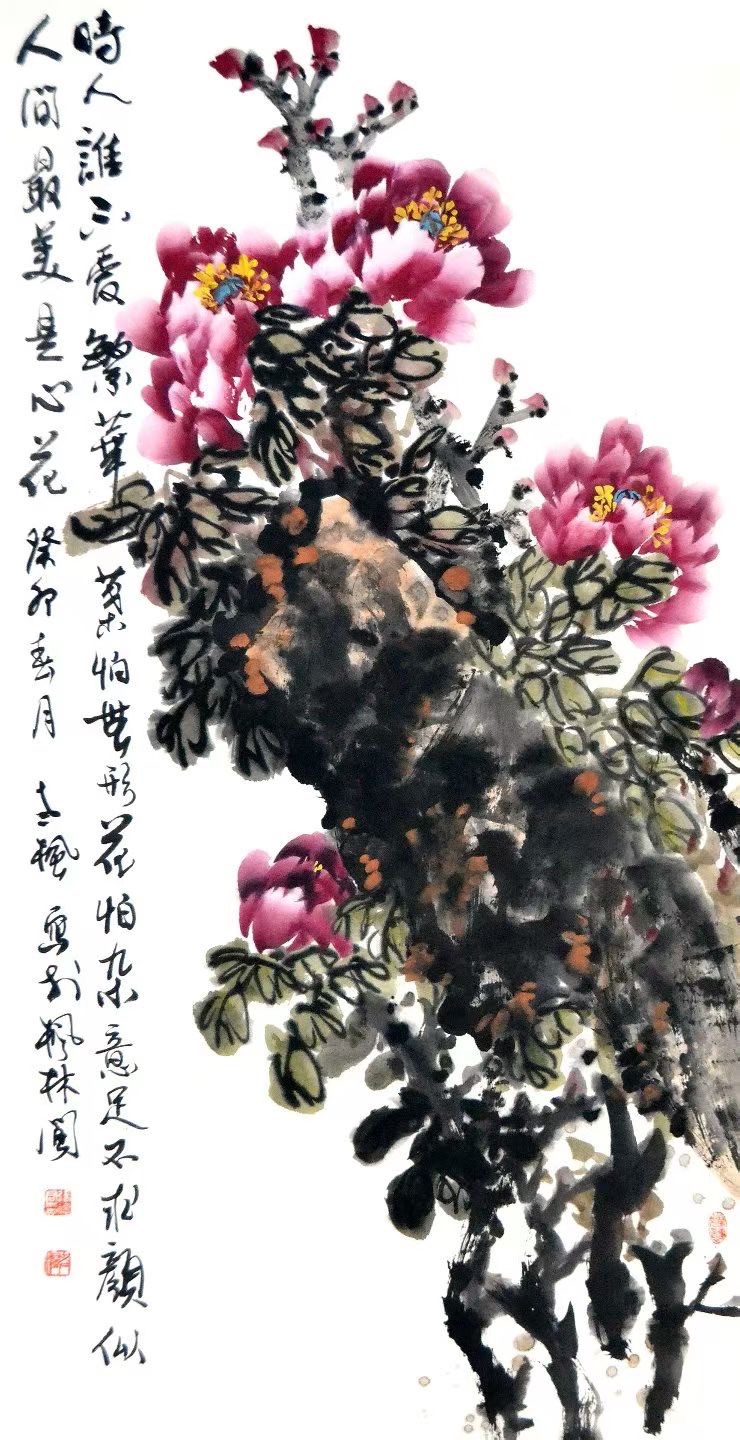 時人誰不愛繁華葉怕無形花怕杂意足不求顏似
人间最美是心花 癸卯春月 志楓寫於楓林閣